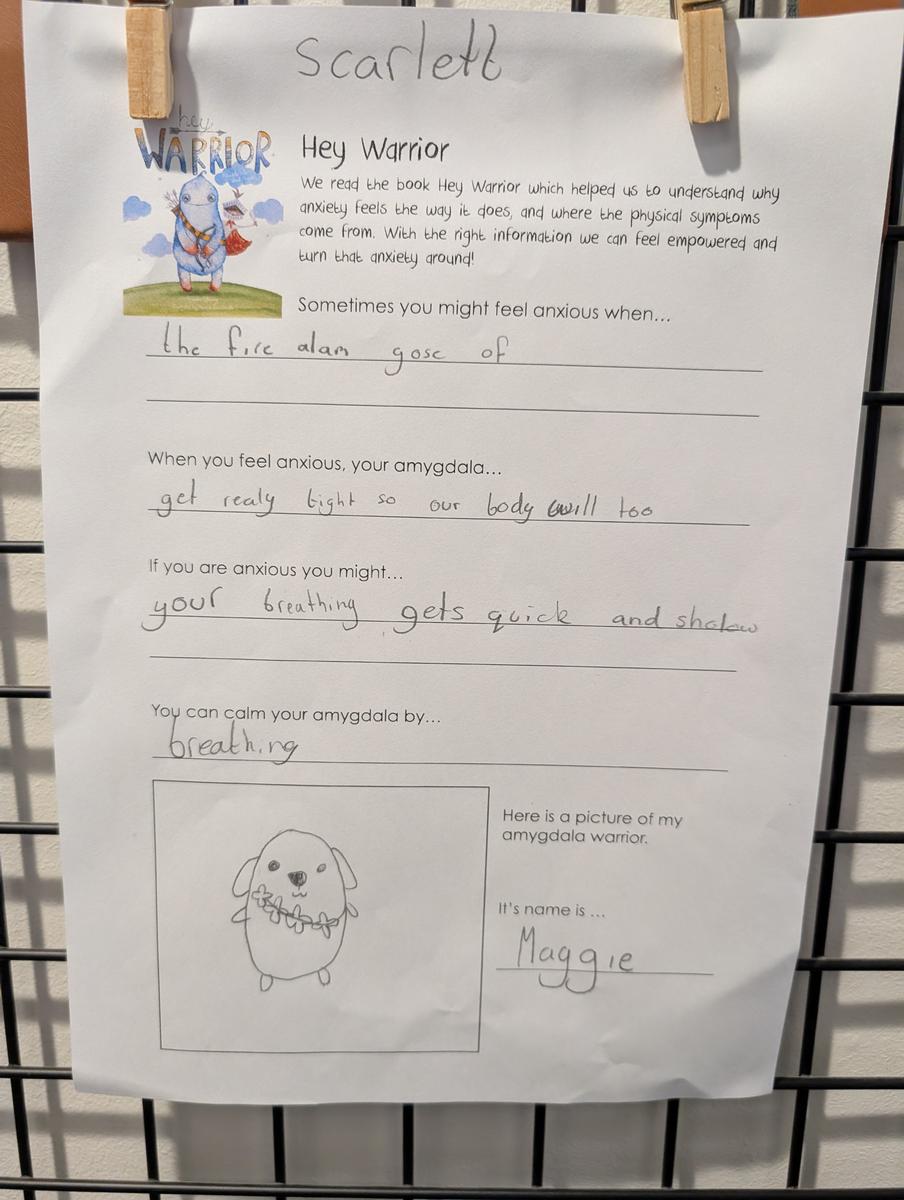 Scarlett
hey
WARRIOR
Hey Warrior
We read the book Hey Warrior which helped us to understand why
anxiety feels the way it does, and where the physical symptoms
come from. With the right information we can feel empowered and
turn that anxiety around!
Sometimes you might feel anxious when...
the fire alam gose of
When you feel anxious, your amygdala...
get realy tight so our body will too
If you are anxious you might...
your breathing gets quick and shalow
You can calm your amygdala by...
breathing
Here is a picture of my
amygdala warrior.
It's name is ...
Maggie